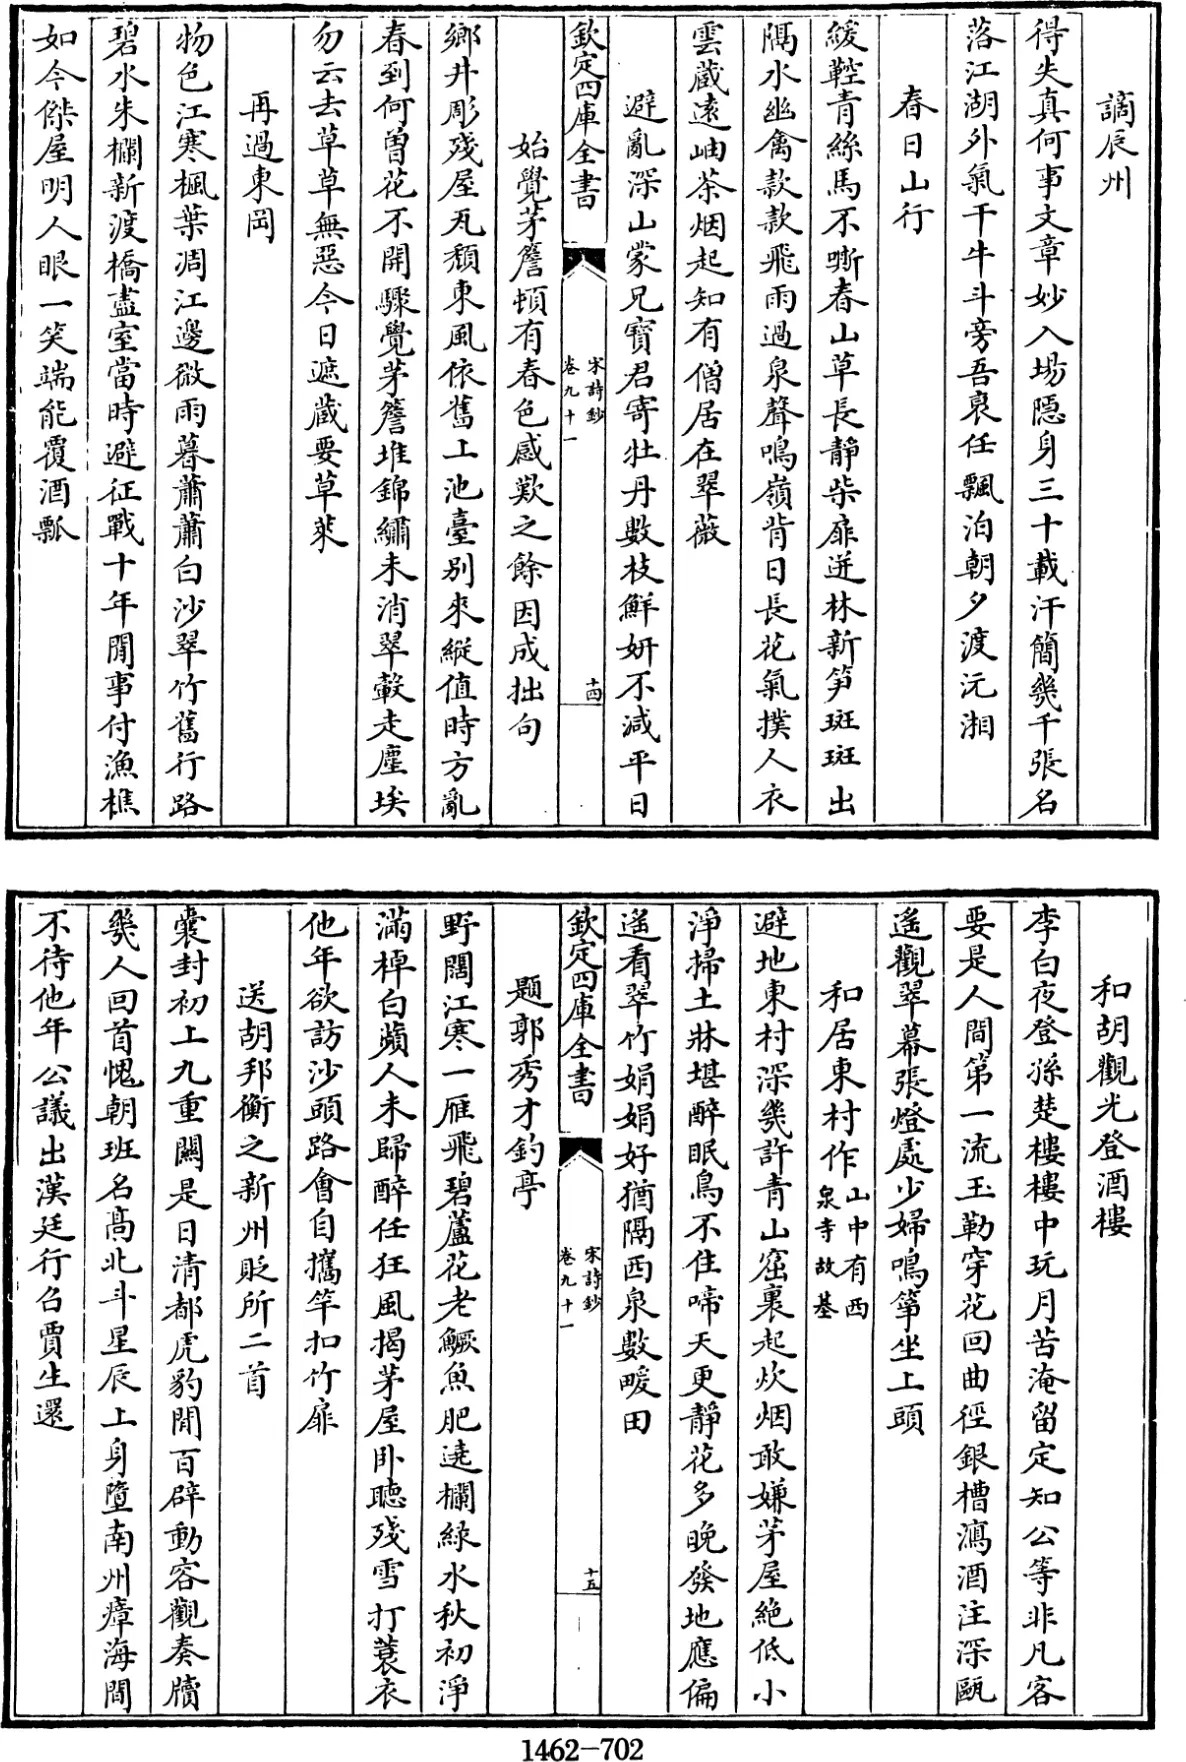 謫辰州
得失真何事文章妙入場隠身三十載汗簡幾千張名
落江湖外氣干牛斗旁吾衰任飄泊朝夕渡沅湘
春日山行
緩鞚青絲馬不嘶春山草長靜柴扉迸林新笋斑斑出
隔水幽禽款款飛雨過泉聲鳴嶺背日長花氣撲人衣
雲藏遠岫茶烟起知有僧居在翠薇
避亂深山蒙兄寳君寄牡丹數枝鮮妍不減平日
始覺茅簷頓有春色感歎之餘因成拙句
欽定四庫全書
宋詩鈔
卷九十一
十四
鄉井彫殘屋瓦頹東風依舊上池臺别來縱值時方亂
春到何曽花不開驟覺茅簷堆錦繡未消翠轂走塵埃
勿云去草草無惡今日遮藏要草萊
再過東岡
物色江寒楓葉凋江邊微雨暮蕭蕭白沙翠竹舊行路
碧水朱欄新渡橋盡室當時避征戰十年閒事付漁樵
如今傑屋明人眼一笑端能覆酒瓢
和胡觀光登酒樓
李白夜登孫楚樓樓中玩月苦淹留定知公等非凡客
要是人間第一流玉勒穿花回曲徑銀槽瀉酒注深甌
遙觀翠幕張燈處少婦鳴箏坐上頭
和居東村作山中有西
泉寺故基
避地東村深幾許青山窟裏起炊烟敢嫌茅屋絶低小
淨掃土牀堪醉眠鳥不住啼天更靜花多晚發地應偏
遥看翠竹娟娟好猶隔西泉數畝田
欽定四庫全書
宋詩鈔
卷九十一
十五
題郭秀才釣亭
野闊江寒一雁飛碧蘆花老鱖魚肥遶欄綠水秋初淨
滿棹白蘋人未歸醉任狂風揭茅屋卧聴殘雪打蓑衣
他年欲訪沙頭路會自攜竿扣竹扉
送胡邦衡之新州貶所二首
囊封初上九重闗是日清都虎豹閒百辟動容觀奏牘
幾人回首愧朝班名髙北斗星辰上身墮南州瘴海間
不待他年公議出漢廷行召賈生還
1462-702